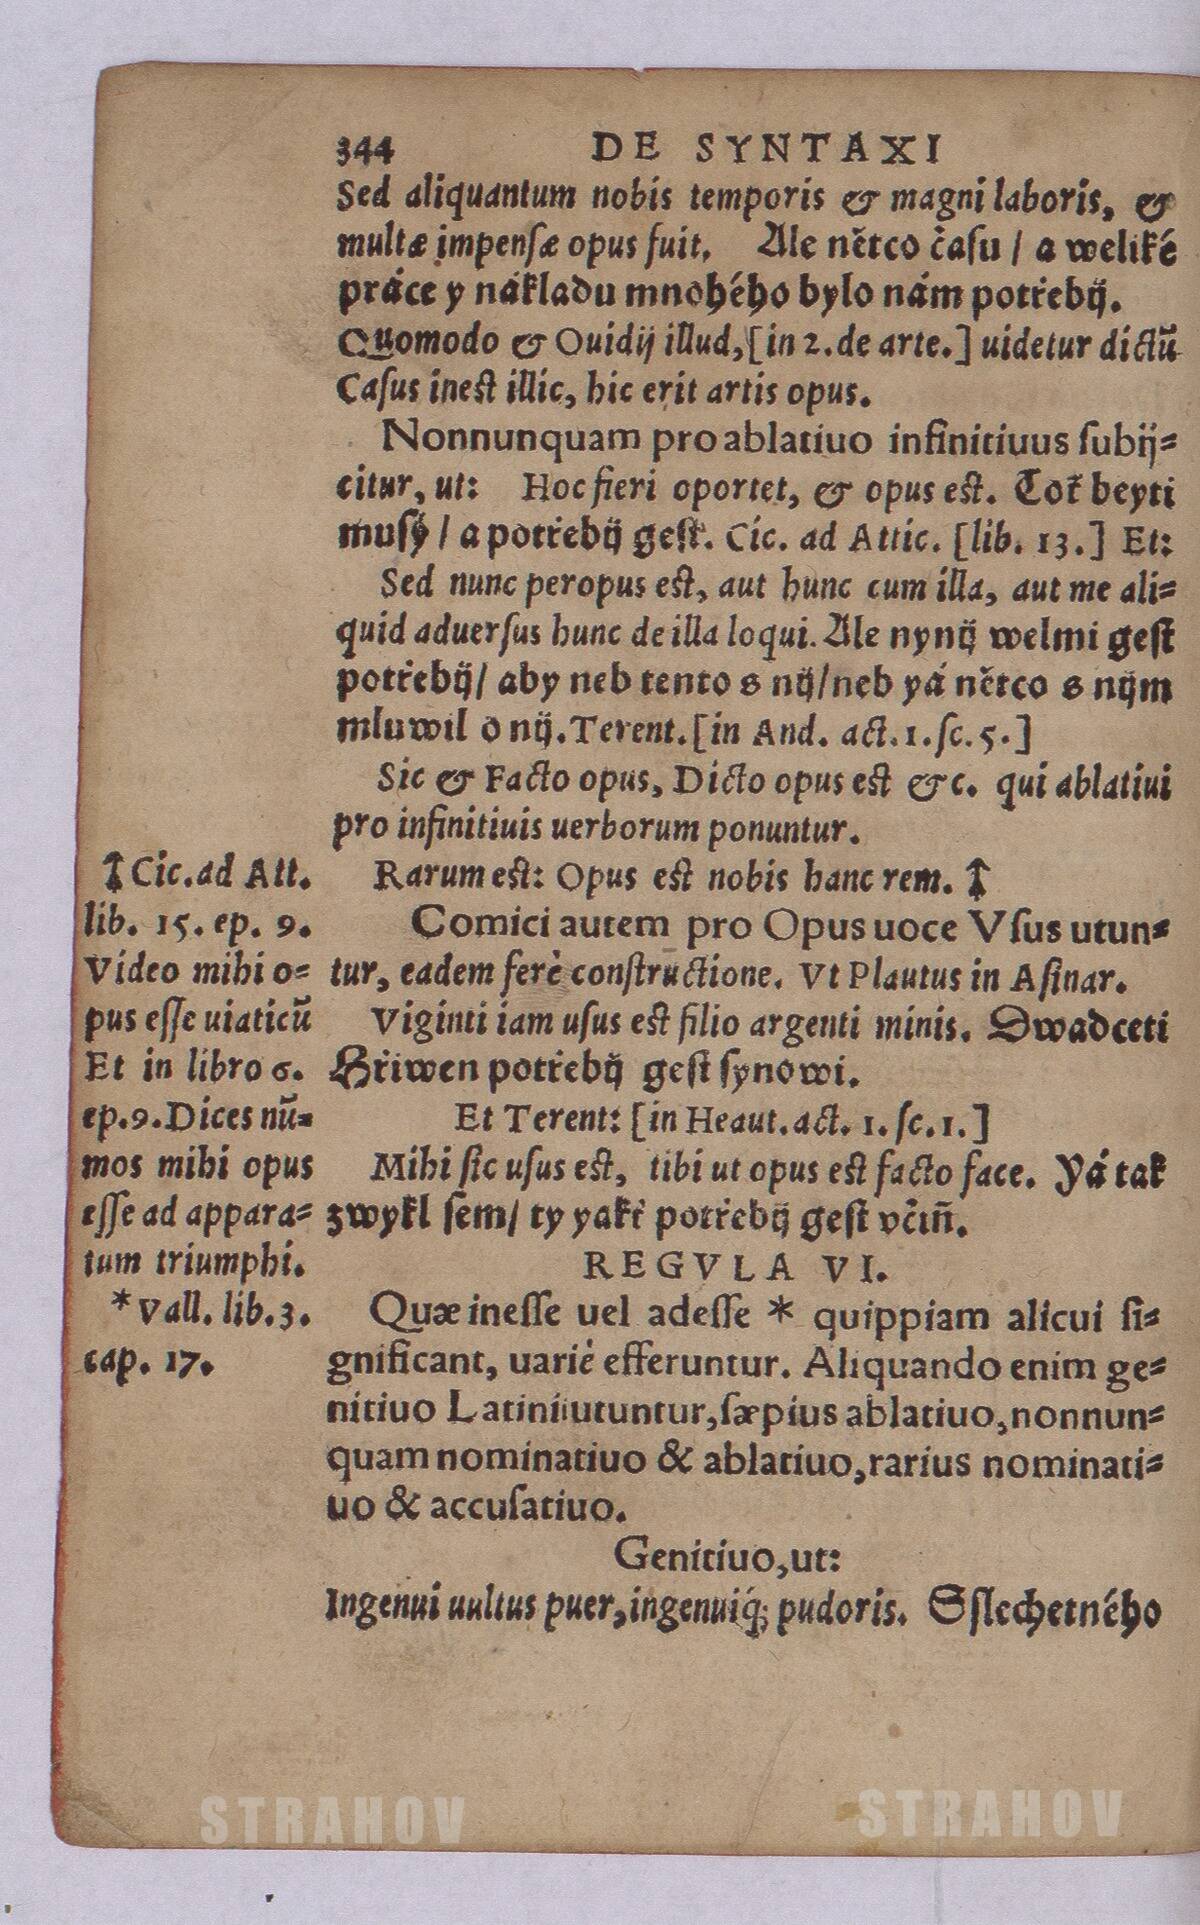 344 DE SYNTAXI
Sed aliquantum nobis temporis & magni laboris, &
multæ impensæ opus fuit. Ale nětco času / a weliké
práce y nákladu mnohého bylo nám potřebij.
Quomodo & Ouidij illud, [in 2. de arte.] uidetur dictũ
Casus inest illic, hic erit artis opus.
Nonnunquam pro ablatiuo infinitiuus subij=
citur, ut: Hoc fieri oportet, & opus est. Toť beyti
musý / a potřebij gest. Cic. ad Attic. [lib. 13.] Et:
Sed nunc peropus est, aut hunc cum illa, aut me ali=
quid aduersus hunc de illa loqui. Ale nynij welmi gest
potřebij / aby neb tento s nij / neb yá nětco s nijm
mluwil o nij. Terent. [in And. act. 1. sc. 5.]
Sic & Facto opus, Dicto opus est &c. qui ablatiui
pro infinitiuis uerborum ponuntur.
Rarum est: Opus est nobis hanc rem. ↑
Comici autem pro Opus uoce Vsus utun=
tur, eadem ferè constructione. Vt Plautus in Asinar.
Viginti iam usus est filio argenti minis. Dwadceti
Hřiwen potřebij gest synowi.
Et Terent: [in Heaut. act. 1. sc. 1.]
Mihi sic usus est, tibi ut opus est facto face. Yá tak
zwykl sem / ty yakť potřebij gest včiň.
REGVLA VI.
Quæ inesse uel adesse * quippiam alicui si=
gnificant, uariè efferuntur. Aliquando enim ge=
nitiuo Latini utuntur, sæpius ablatiuo, nonnun=
quam nominatiuo & ablatiuo, rarius nominati=
uo & accusatiuo.
Genitiuo, ut:
Ingenui uultus puer, ingenuiq́; pudoris. Sslechetného
↑ Cic. ad Att.
lib. 15. ep. 9.
Video mihi o=
pus esse uiaticũ
Et in libro 6.
ep. 9. Dices nũ=
mos mihi opus
esse ad appara=
tum triumphi.
* Vall. lib. 3.
cap. 17.
STRAHOV
STRAHOV